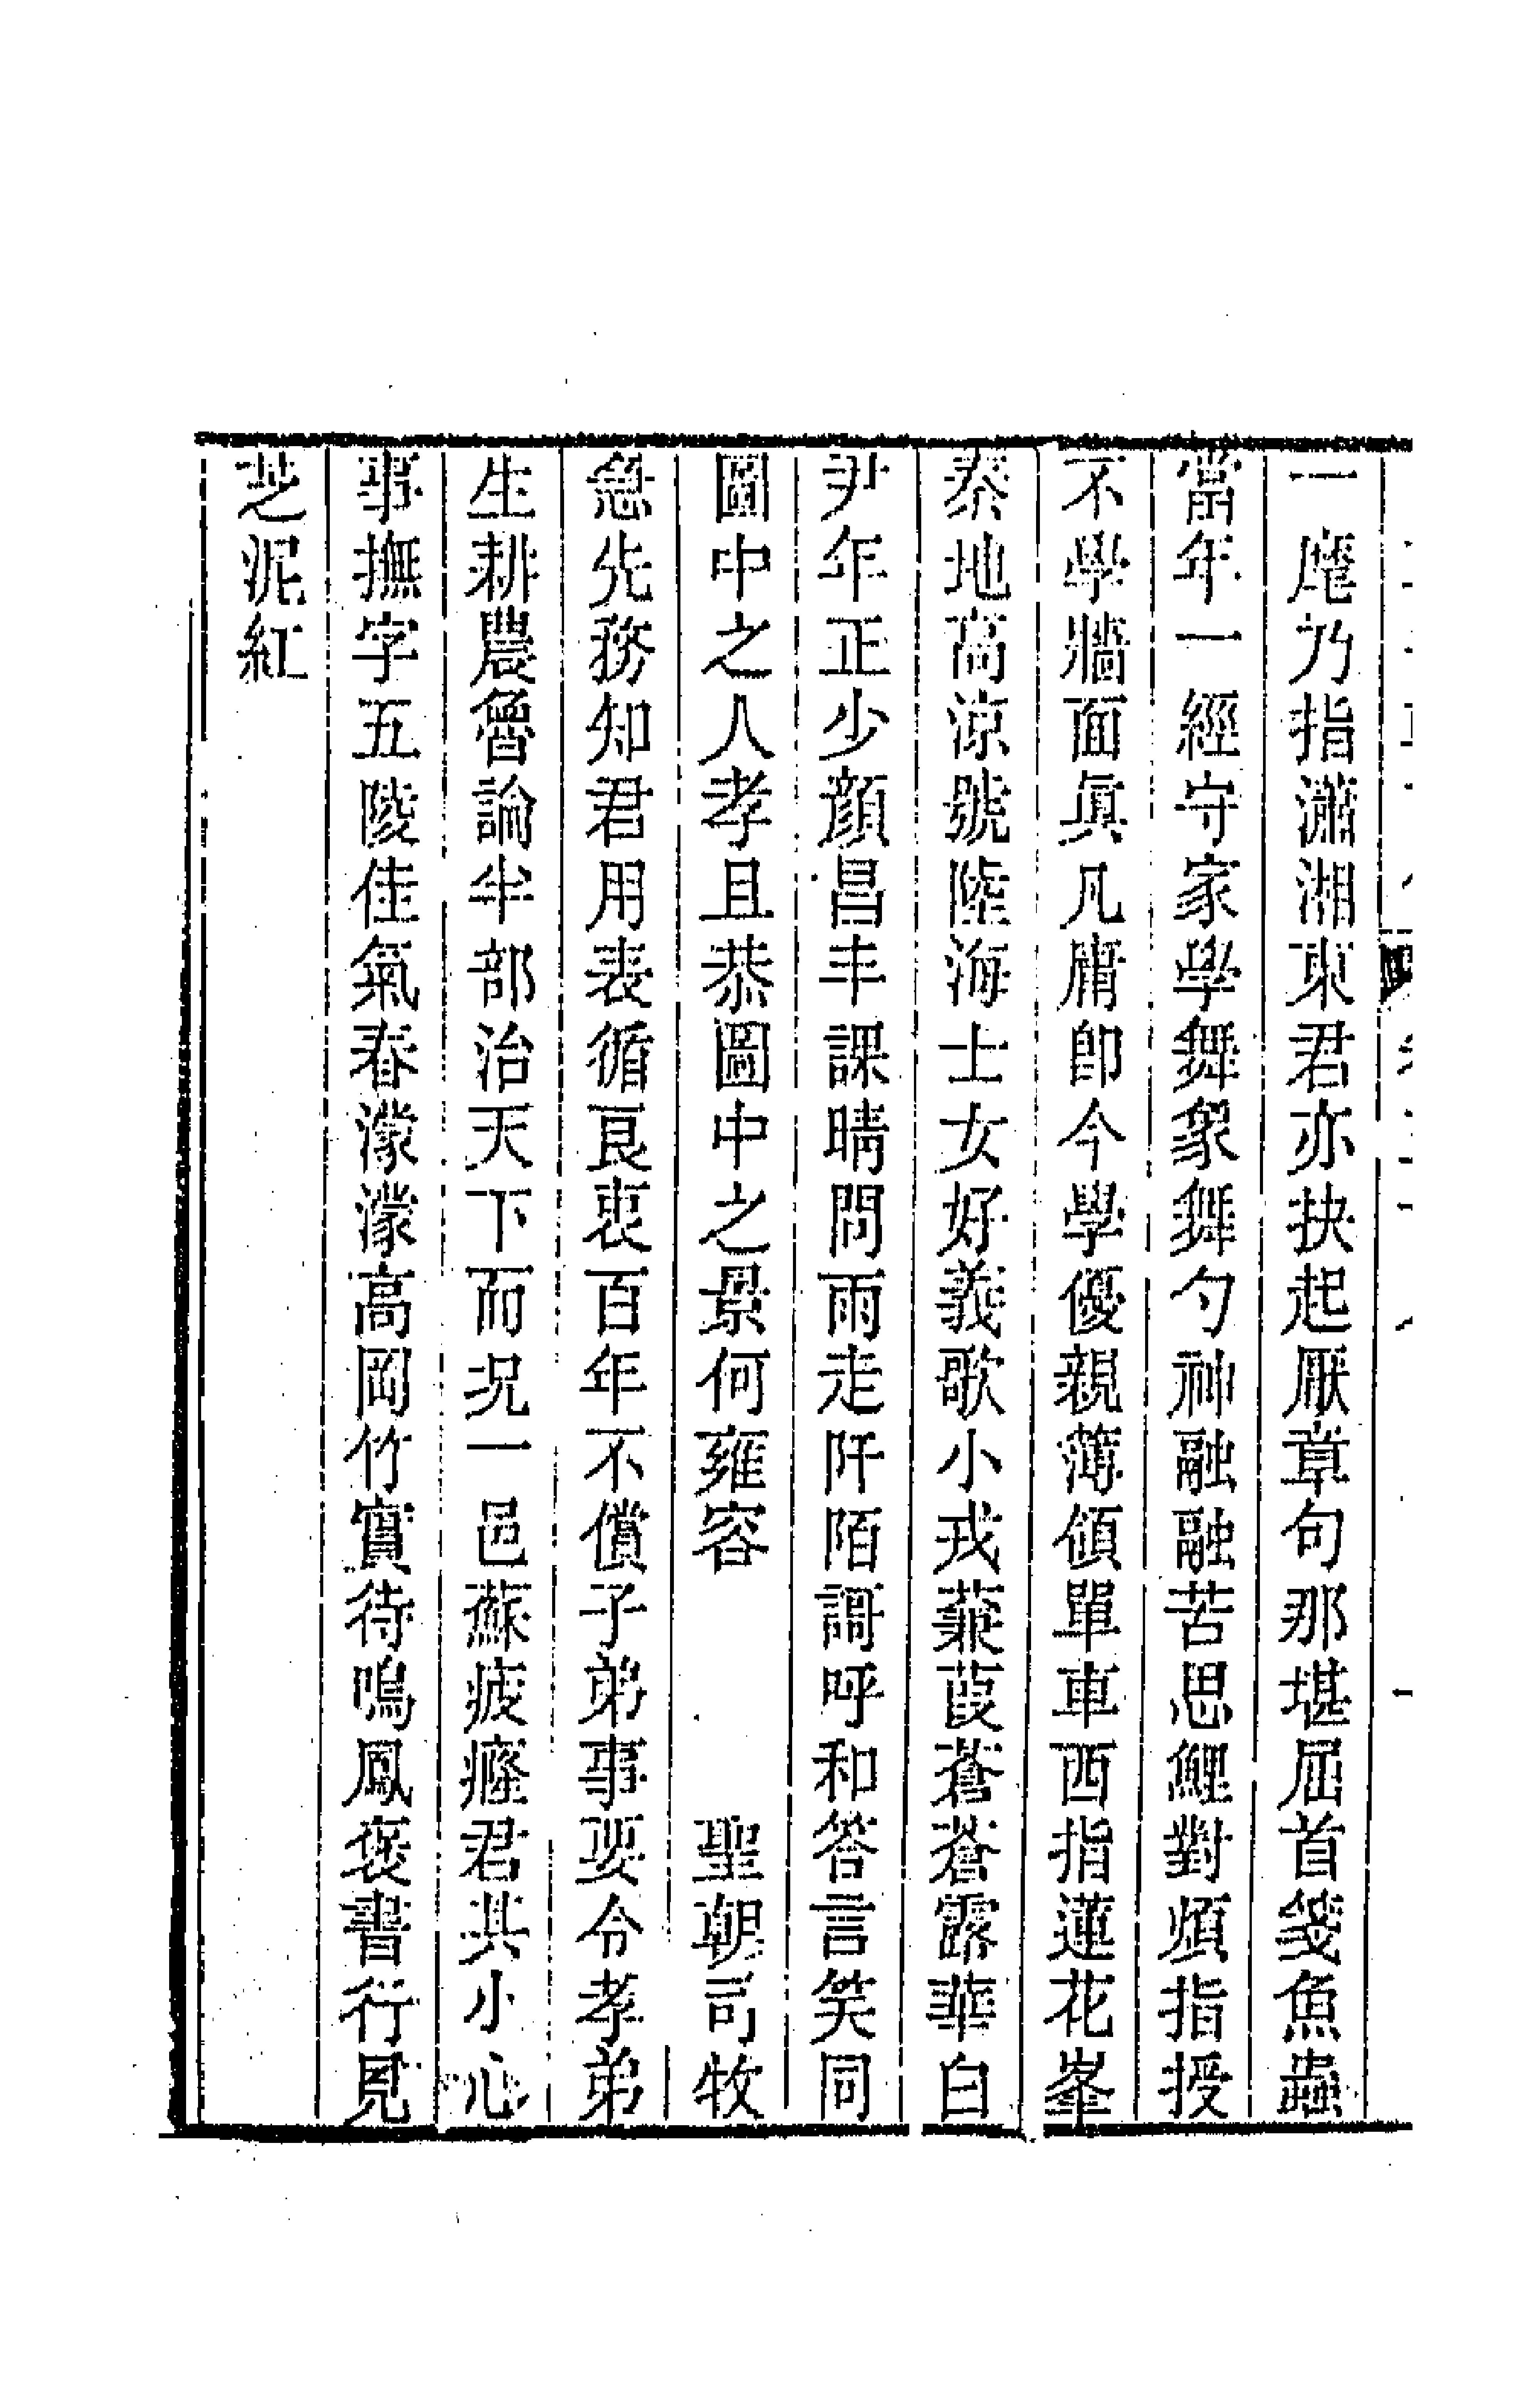 一麾乃指瀟湘東君亦抉起厭章句那堪屈首箋魚蟲
當年一經守家學舞象舞勺神融融苦思鯉對煩指授
不學牆面眞凡庸卽今學優親薄領單車西指蓮花峯
泰地高涼號陸海士女好義歌小戎蒹葭蒼蒼露華白
尹年正少顏昌丰課晴問雨走阡陌謌呼和答言笑同
圖中之人孝且恭圖中之景何雍容　　聖朝司牧
急先務知君用表循良衷百年不償子弟事要令孝弟
生耕農魯論半部治天下而况一邑蘇疲癃君其小心
事撫字五陵佳氣春濛濛高岡竹實待鳴鳳褒書行見
芝泥紅